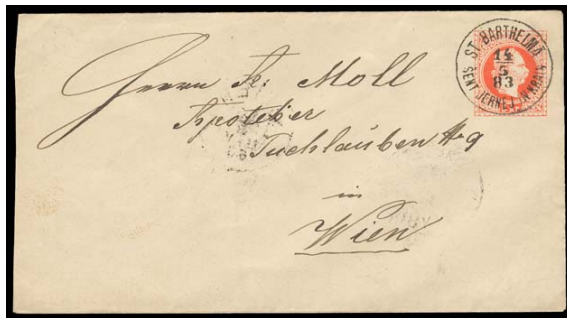 ST. BARTHELMÄ
14
5
83
SENT JERNEJ IN KRAIN
Herrn A. Moll
Apotheker
Tuchlauben No 9
in
Wien